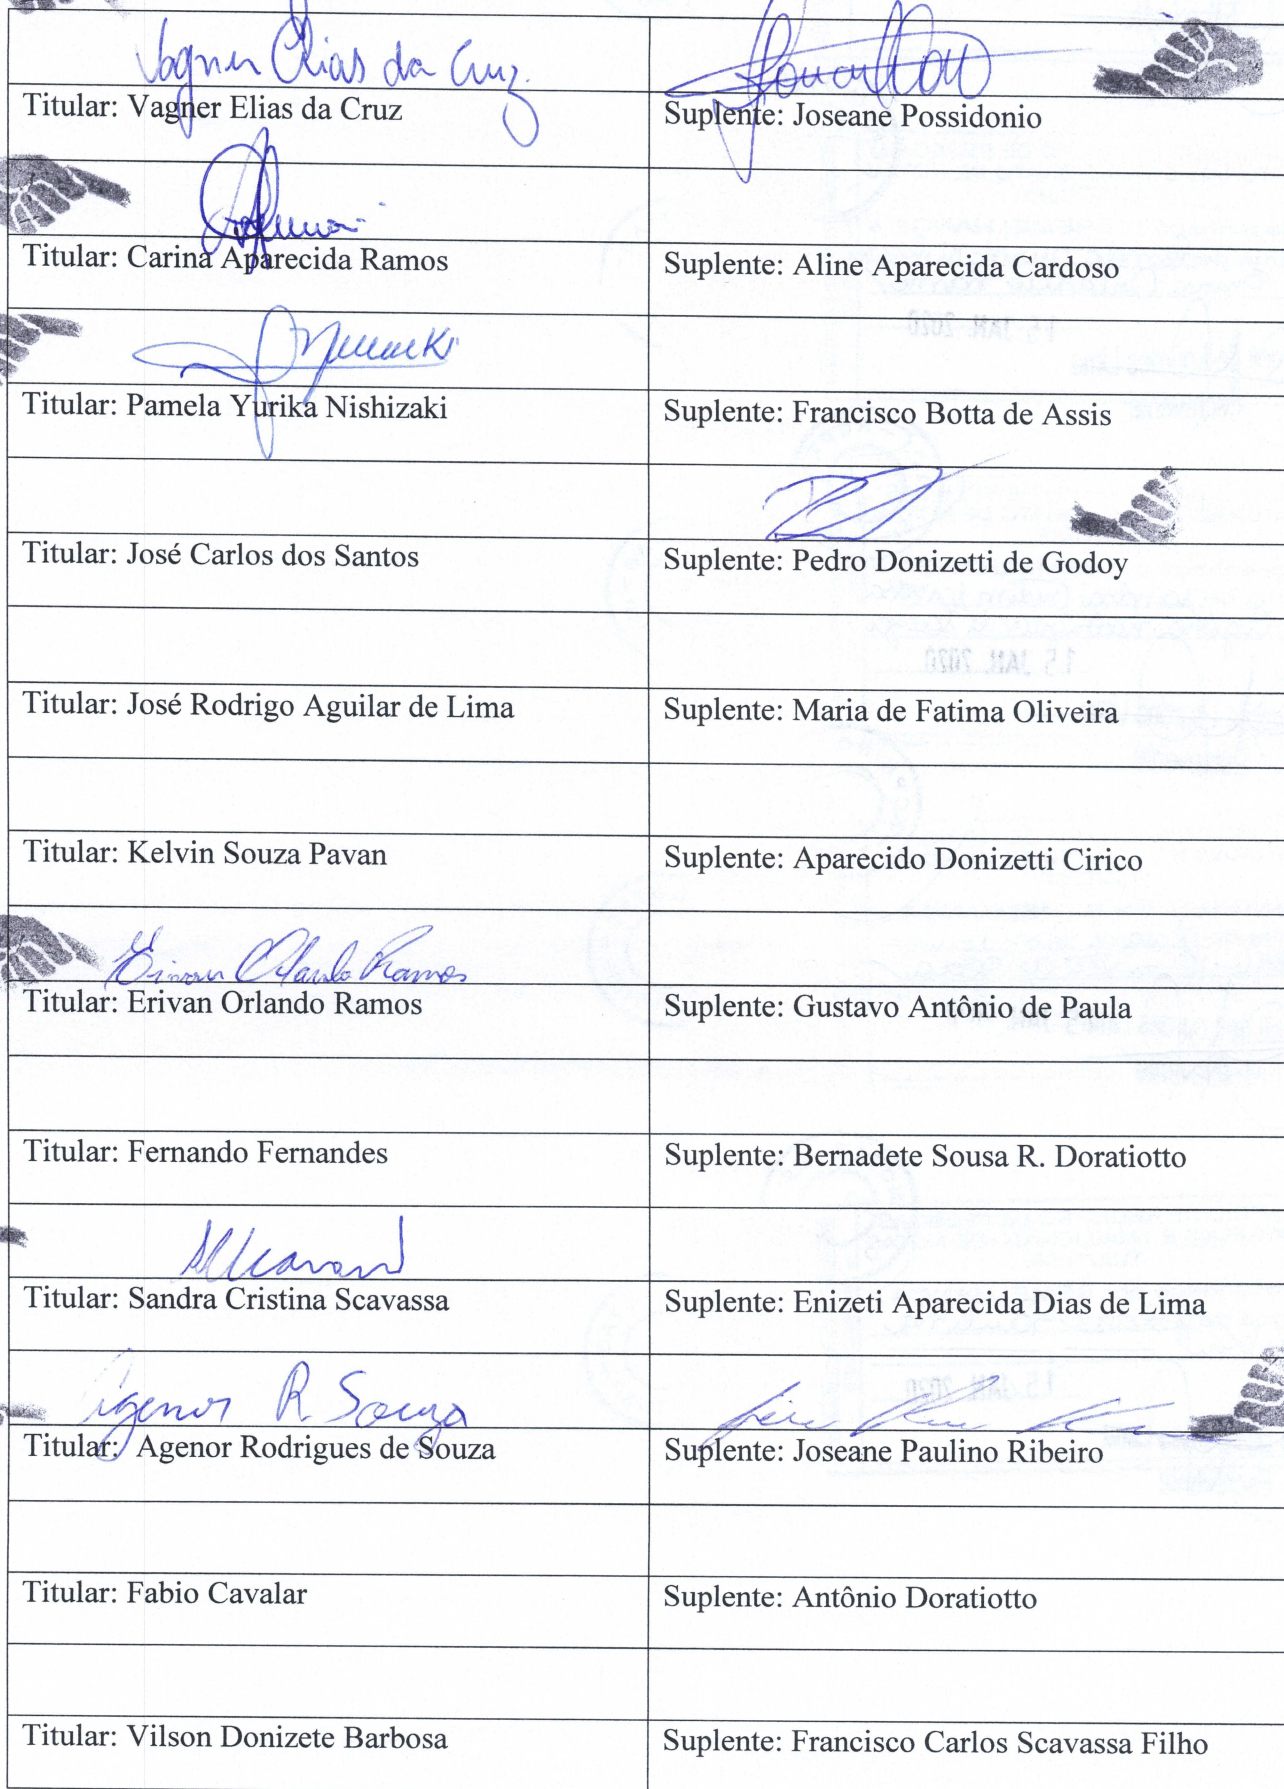 Vagner Elias da Cruz
Titular: Vagner Elias da Cruz
Suplente: Joseane Possidonio
Titular: Carina Aparecida Ramos
Suplente: Aline Aparecida Cardoso
Titular: Pamela Yurika Nishizaki
Suplente: Francisco Botta de Assis
Titular: José Carlos dos Santos
Suplente: Pedro Donizetti de Godoy
Titular: José Rodrigo Aguilar de Lima
Suplente: Maria de Fatima Oliveira
Titular: Kelvin Souza Pavan
Suplente: Aparecido Donizetti Cirico
Erivan Orlando Ramos
Titular: Erivan Orlando Ramos
Suplente: Gustavo Antônio de Paula
Titular: Fernando Fernandes
Suplente: Bernadete Sousa R. Doratiotto
Titular: Sandra Cristina Scavassa
Suplente: Enizeti Aparecida Dias de Lima
Agenor R Souza
Titular: Agenor Rodrigues de Souza
Suplente: Joseane Paulino Ribeiro
Titular: Fabio Cavalar
Suplente: Antônio Doratiotto
Titular: Vilson Donizete Barbosa
Suplente: Francisco Carlos Scavassa Filho